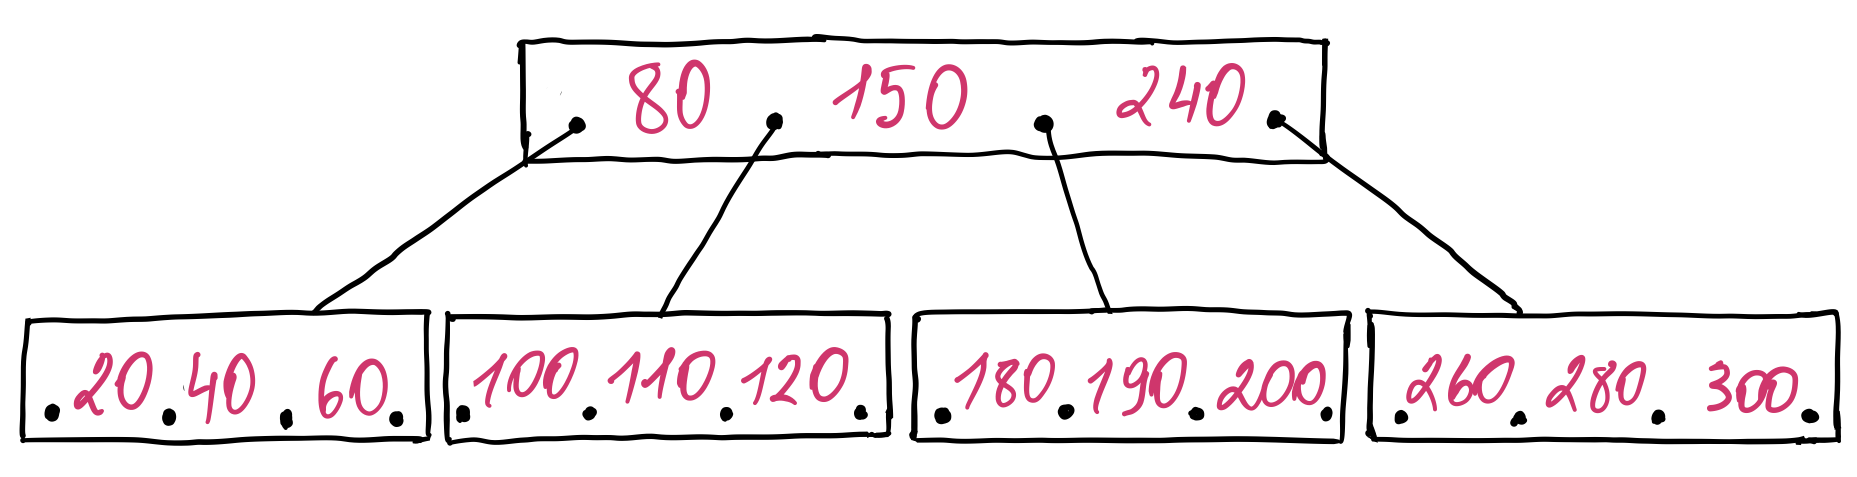 80 150 240
20 40 60 100 110 120 180 190 200 260 280 300